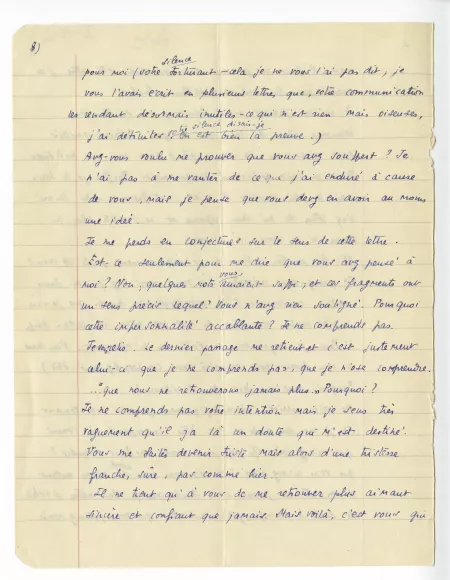 8)
silence
pour moi (votre torturant – cela je ne vous l'ai pas dit, je
vous l'avais écrit en plusieurs lettres que, votre communication
les rendant désormais inutiles – ce qui n'est rien mais oiseuses,
silence dirais-je
j'ai détruites en est bien la preuve.)
Avez-vous voulu me prouver que vous avez souffert ? Je
n'ai pas à me vanter de ce que j'ai enduré à cause
de vous, mais je pense que vous devez en avoir au moins
une idée.
Je me perds en conjectures sur le sens de cette lettre.
Est-ce seulement pour me dire que vous avez pensé à
vous
moi ? Non, quelques mots auraient suffi ; et ces fragments ont
un sens précis lequel ? Vous n'avez rien souligné. Pourquoi
cette impersonnalité accablante ? Je ne comprends pas.
Je le dernier passage me retient et c'est justement
celui-ci que je ne comprends pas, que je n'ose comprendre.
..."que nous ne retrouverons jamais plus." Pourquoi ?
Je ne comprends pas votre intention mais je sens très
vaguement qu'il y a là un doute qui m'est destiné.
Vous me faites devenir triste mais alors d'une tristesse
franche, sûre, pas comme hier.
Il ne tient qu'à vous de me retrouver plus aimant
sincère et confiant que jamais. Mais voilà, c'est vous qui